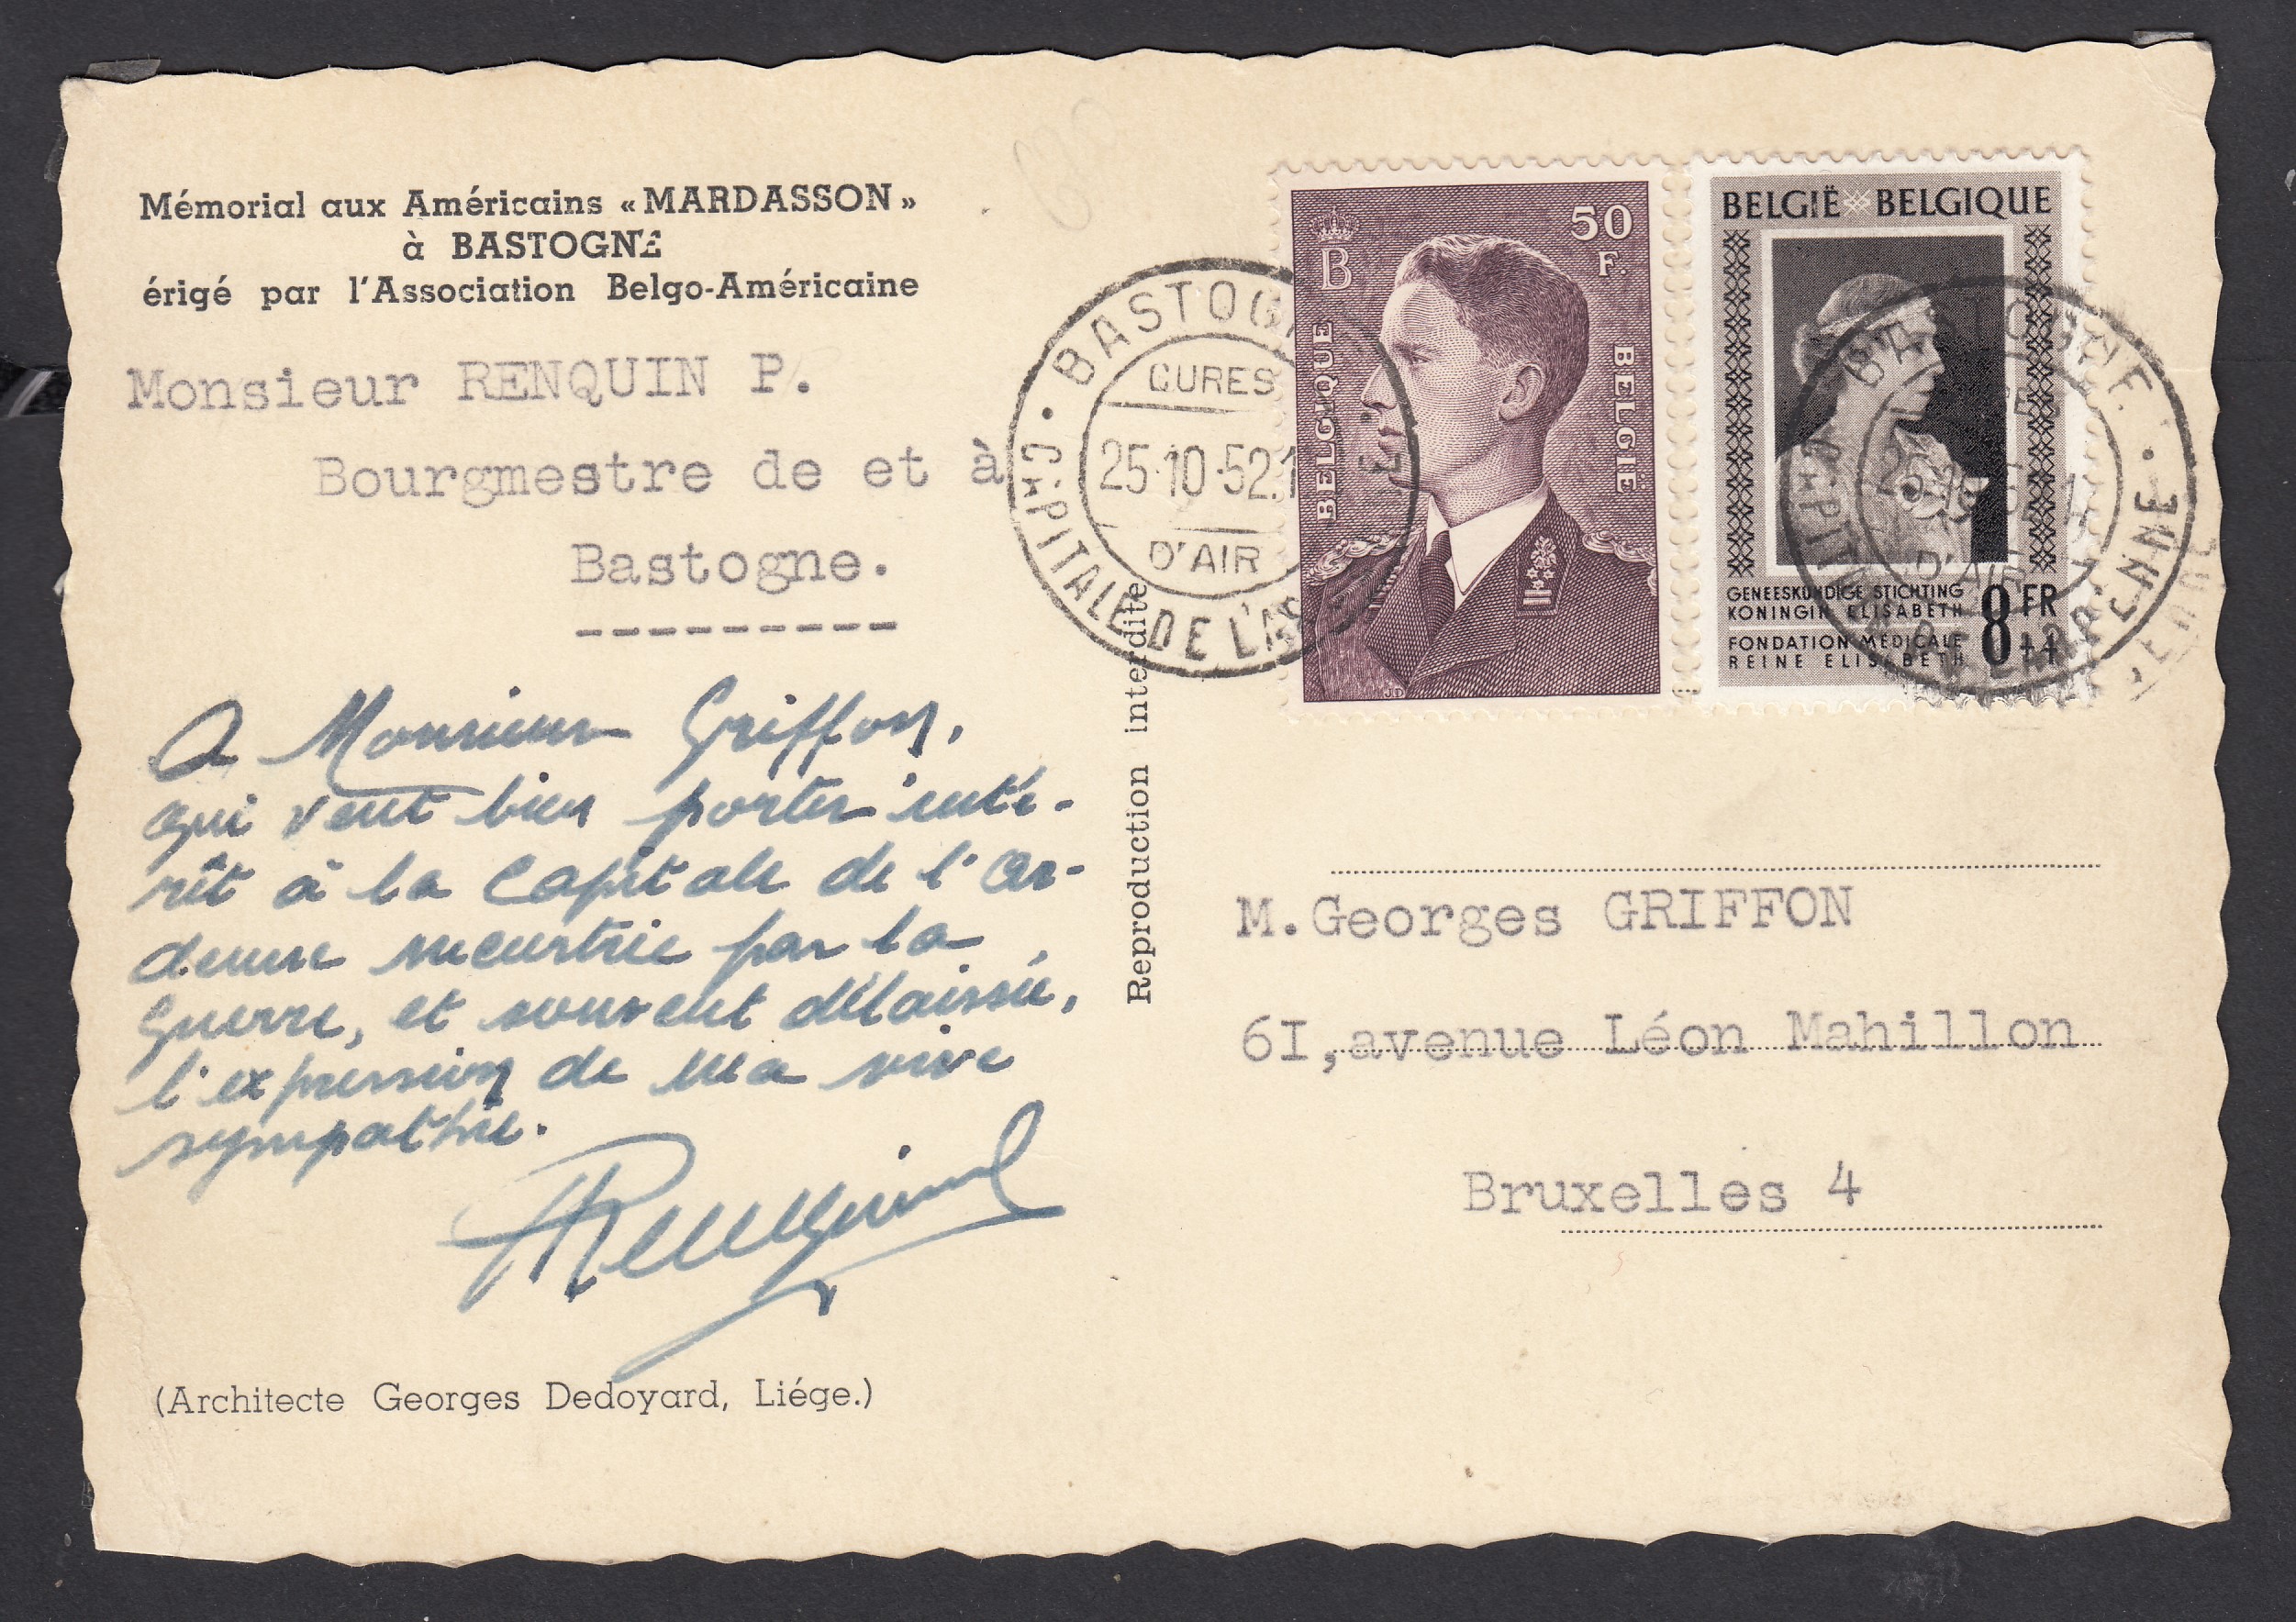 Mémorial aux Américains « MARDASSON »
à BASTOGNE
érigé par l'Association Belgo-Américaine
Monsieur RENQUIN P.
Bourgmestre de et à
Bastogne.
---------
A Monsieur Griffon,
qui veut bien porter inté-
rêt à la Capitale de l'Ar-
denne meurtrie par la
Guerre, et souvent délaissée,
l'expression de ma vive
sympathie.
PRenquin
(Architecte Georges Dedoyard, Liége.)
Reproduction interdite
BASTOGN
CURES
25-10-52
D'AIR
CAPITALE DE L'AR
50
F.
B
BELGIQUE
BELGIË
BELGIË BELGIQUE
GENEESKUNDIGE STICHTING
KONINGIN ELISABETH
FONDATION MÉDICALE
REINE ELISABETH
8 FR
+4
BASTOGNE
D'AIR
M. Georges GRIFFON
6I, avenue Léon Mahillon
Bruxelles 4